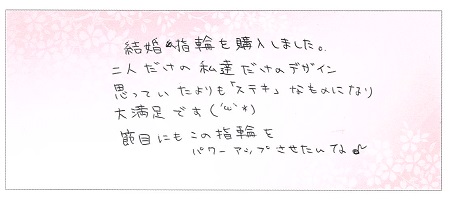 結婚指輪を購入しました。
二人だけの私達だけのデザイン
思っていたよりも「ステキ」なものになり
大満足です('ω'*)
節目にもこの指輪を
パワーアップさせたいな♪